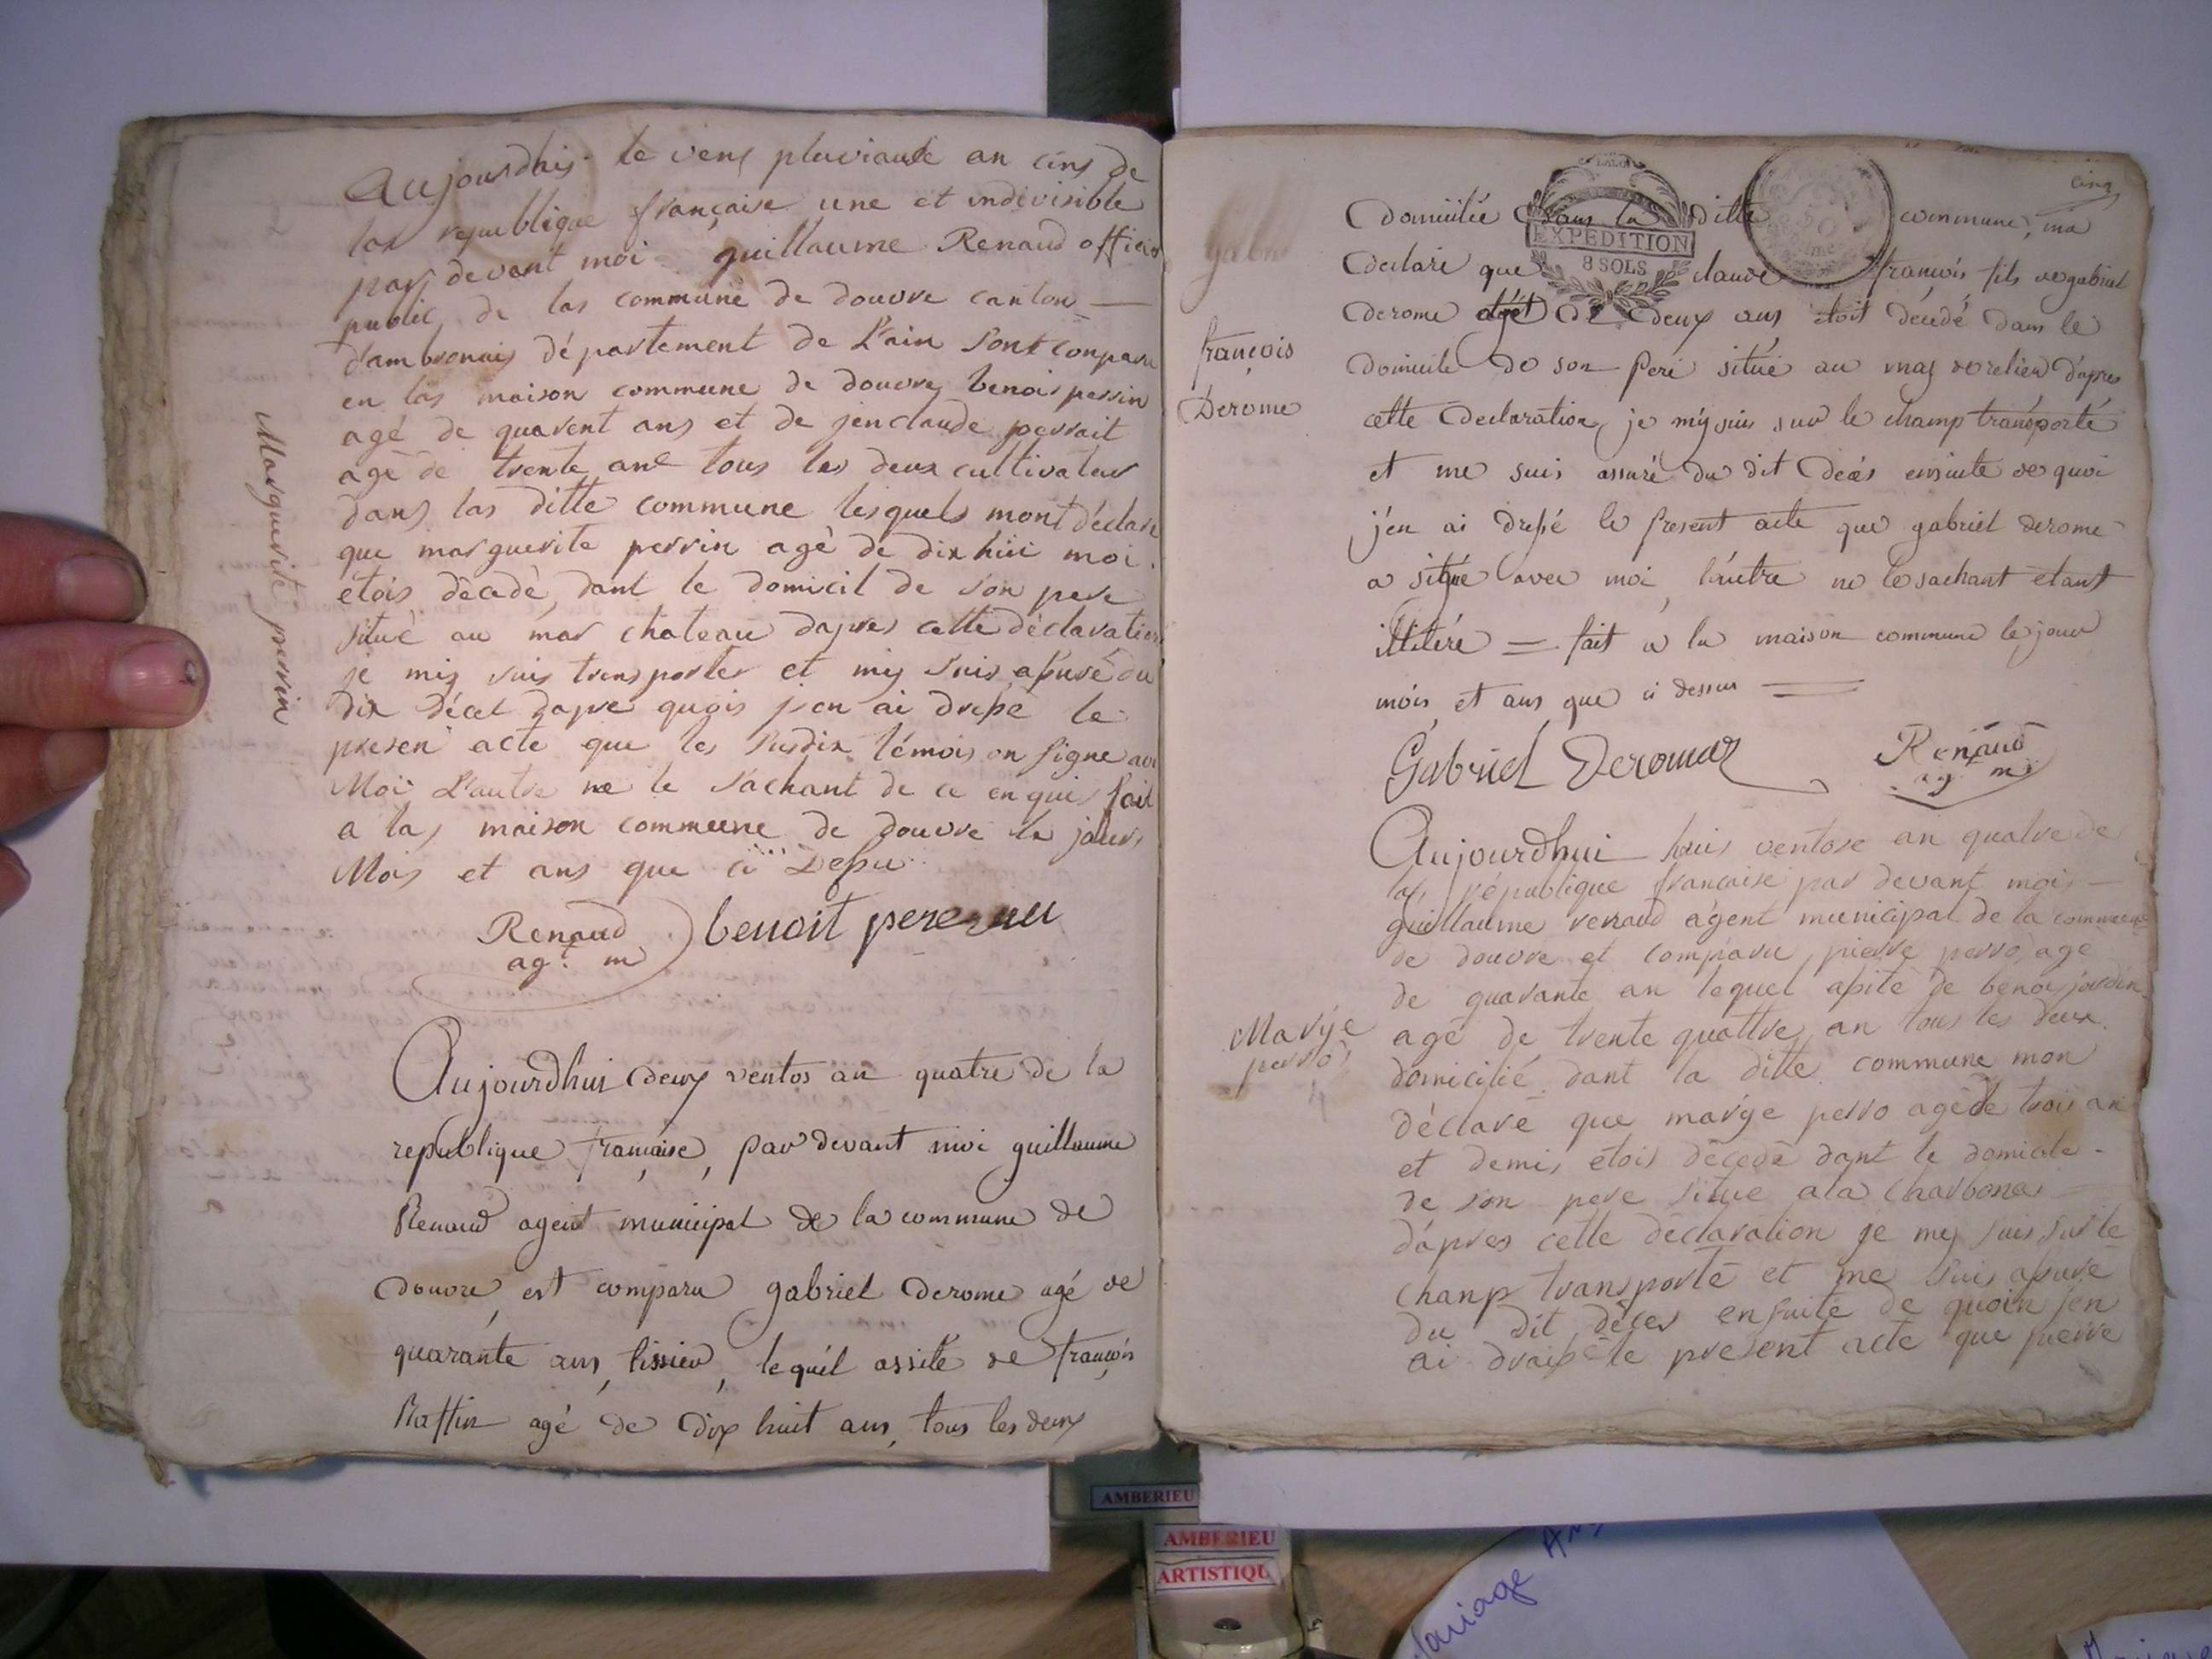 Aujourdhis le veng pluviause an cins de
las republique française une et indivisible
par devant moi guillaume Renaud officier
public de las commune de douvre canton
d'ambronais département de L'ain sont conparu
en las maison commune de douvre benois perrin
agé de quarent ans et de jenclaude perrait
agé de trente ans tous les deux cultivateur
dans las ditte commune lesquels mont déclaré
que marguerite perrin agé de dix huis moi
étois décedé dant le domicil de son pere
situé au mas chateau dapres cette déclaration
je mis suis transporter et mis suis assuré du
dix décet dapre quois j'en ai dressé le
presen acte que les susdix témois on signe avec
Moi L'autre ne le sachant de ce enquis fait
a las maison commune de douvre le jours
Mois et ans que ci Dessu
Marguerite perrin
Renaud
ag. m
benoit pere
Aujourdhui deux ventos an quatre de la
republique française, par devant moi guillaume
Renaud agent municipal de la commune de
douvre, est comparu gabriel derome agé de
quarante ans, tissier, lequel assite de françois
Raffin agé de dix huit ans, tous les deux
cinq
domiciliée dans la ditte commune, ma
EXPEDITION
8 SOLS
declaré que claude françois fils de gabriel
derome agét de deux ans étoit décédé dans le
domicile de son Peré situé au mas de relien d'apres
cette declaration, je m'y suis sur le champ transporté
et me suis assuré du dit decés ensuite de quoi
j'en ai dressé le present acte que gabriel derome
a signé avec moi, l'autre ne le sachant etant
illitéré = fait a la maison commune le jour
mois et ans que ci dessus
françois
Derome
Gabriel Deromas
Renaud
ag. m
Aujourdhui huis ventose an quatre de
las république francaise par devant mois
guillaume renaud agent municipal de la commune
de douvre et comparu pierre perro, agé
de quarante an lequel assité de benois jordin
agé de trente quattre an tous les deux
domicilié dant la ditte commune mon
déclaré que marije perro agé de trois an
et demis étois décédé dant le domicile
de son pere situe a la Charbonas
d'apres cette declaration je mes suis sur le
chanp transporté et me suis assuré
du dit déces ensuite de quoin jen
ai draissé le present acte que pierre
Marije
perro
AMBERIEU
AMBERIEU
ARTISTIQU
Mariage